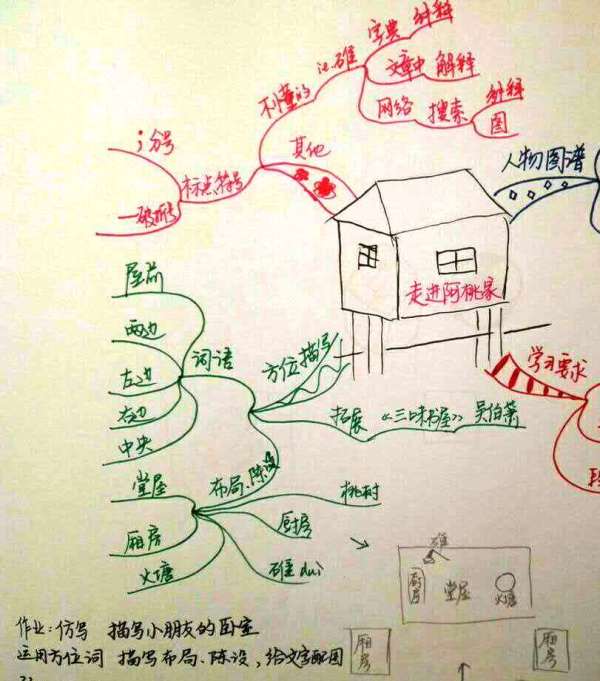 字典 解释
文章中 解释
网络 搜索 解释
图
不懂的
i.e.碓
其他
标点符号
；分号
——破折号
人物图谱
走进阿桃家
学习要求
方位描写
词语
屋前
两边
左边
右边
中央
拓展 《三味书屋》 吴伯箫
布局、陈设
堂屋
厢房
火塘
桃树
厨房
碓 duì
碓
厨房
堂屋
火塘
厢房
厢房
作业：仿写 描写小朋友的卧室
运用方位词 描写布局、陈设，给文字配图